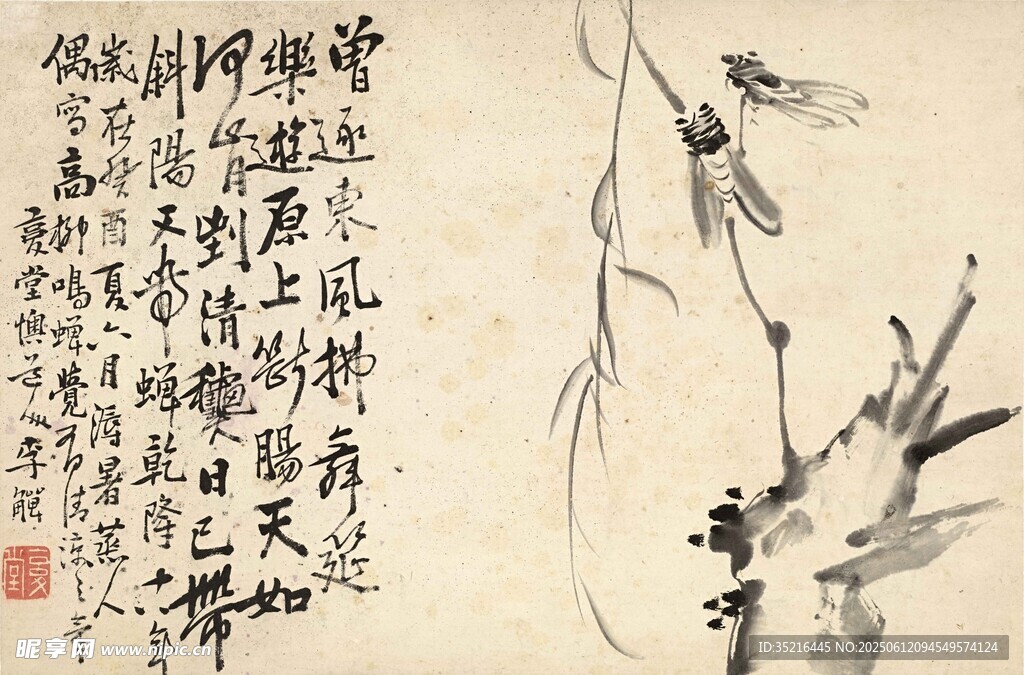 曾逐東風拂舞筵
樂遊原上斷腸天如
何肯到清龝日已帶
斜陽又帶蟬乾隆十八年
歲在癸酉夏六月溽暑蒸人
偶寫高柳鳴蟬覺有清涼之
复堂懊道人李鱓
复堂
昵享网 www.nipic.cn
ID:35216445 NO:20250612094549574124